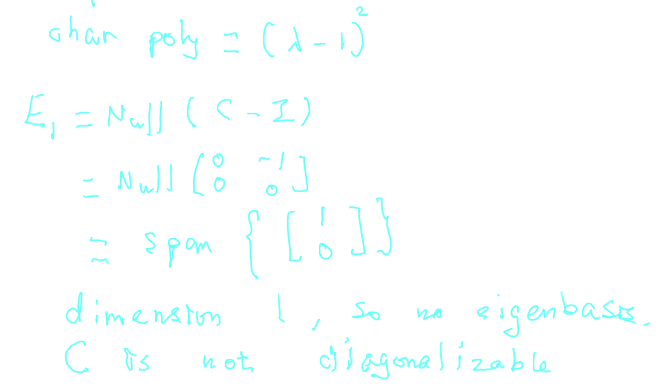 char poly = (λ-1)²
E₁ = Null (C-I)
= Null [0 -1
0 0]
= span {[1
0]}
dimension 1, so no eigenbasis.
C is not diagonalizable